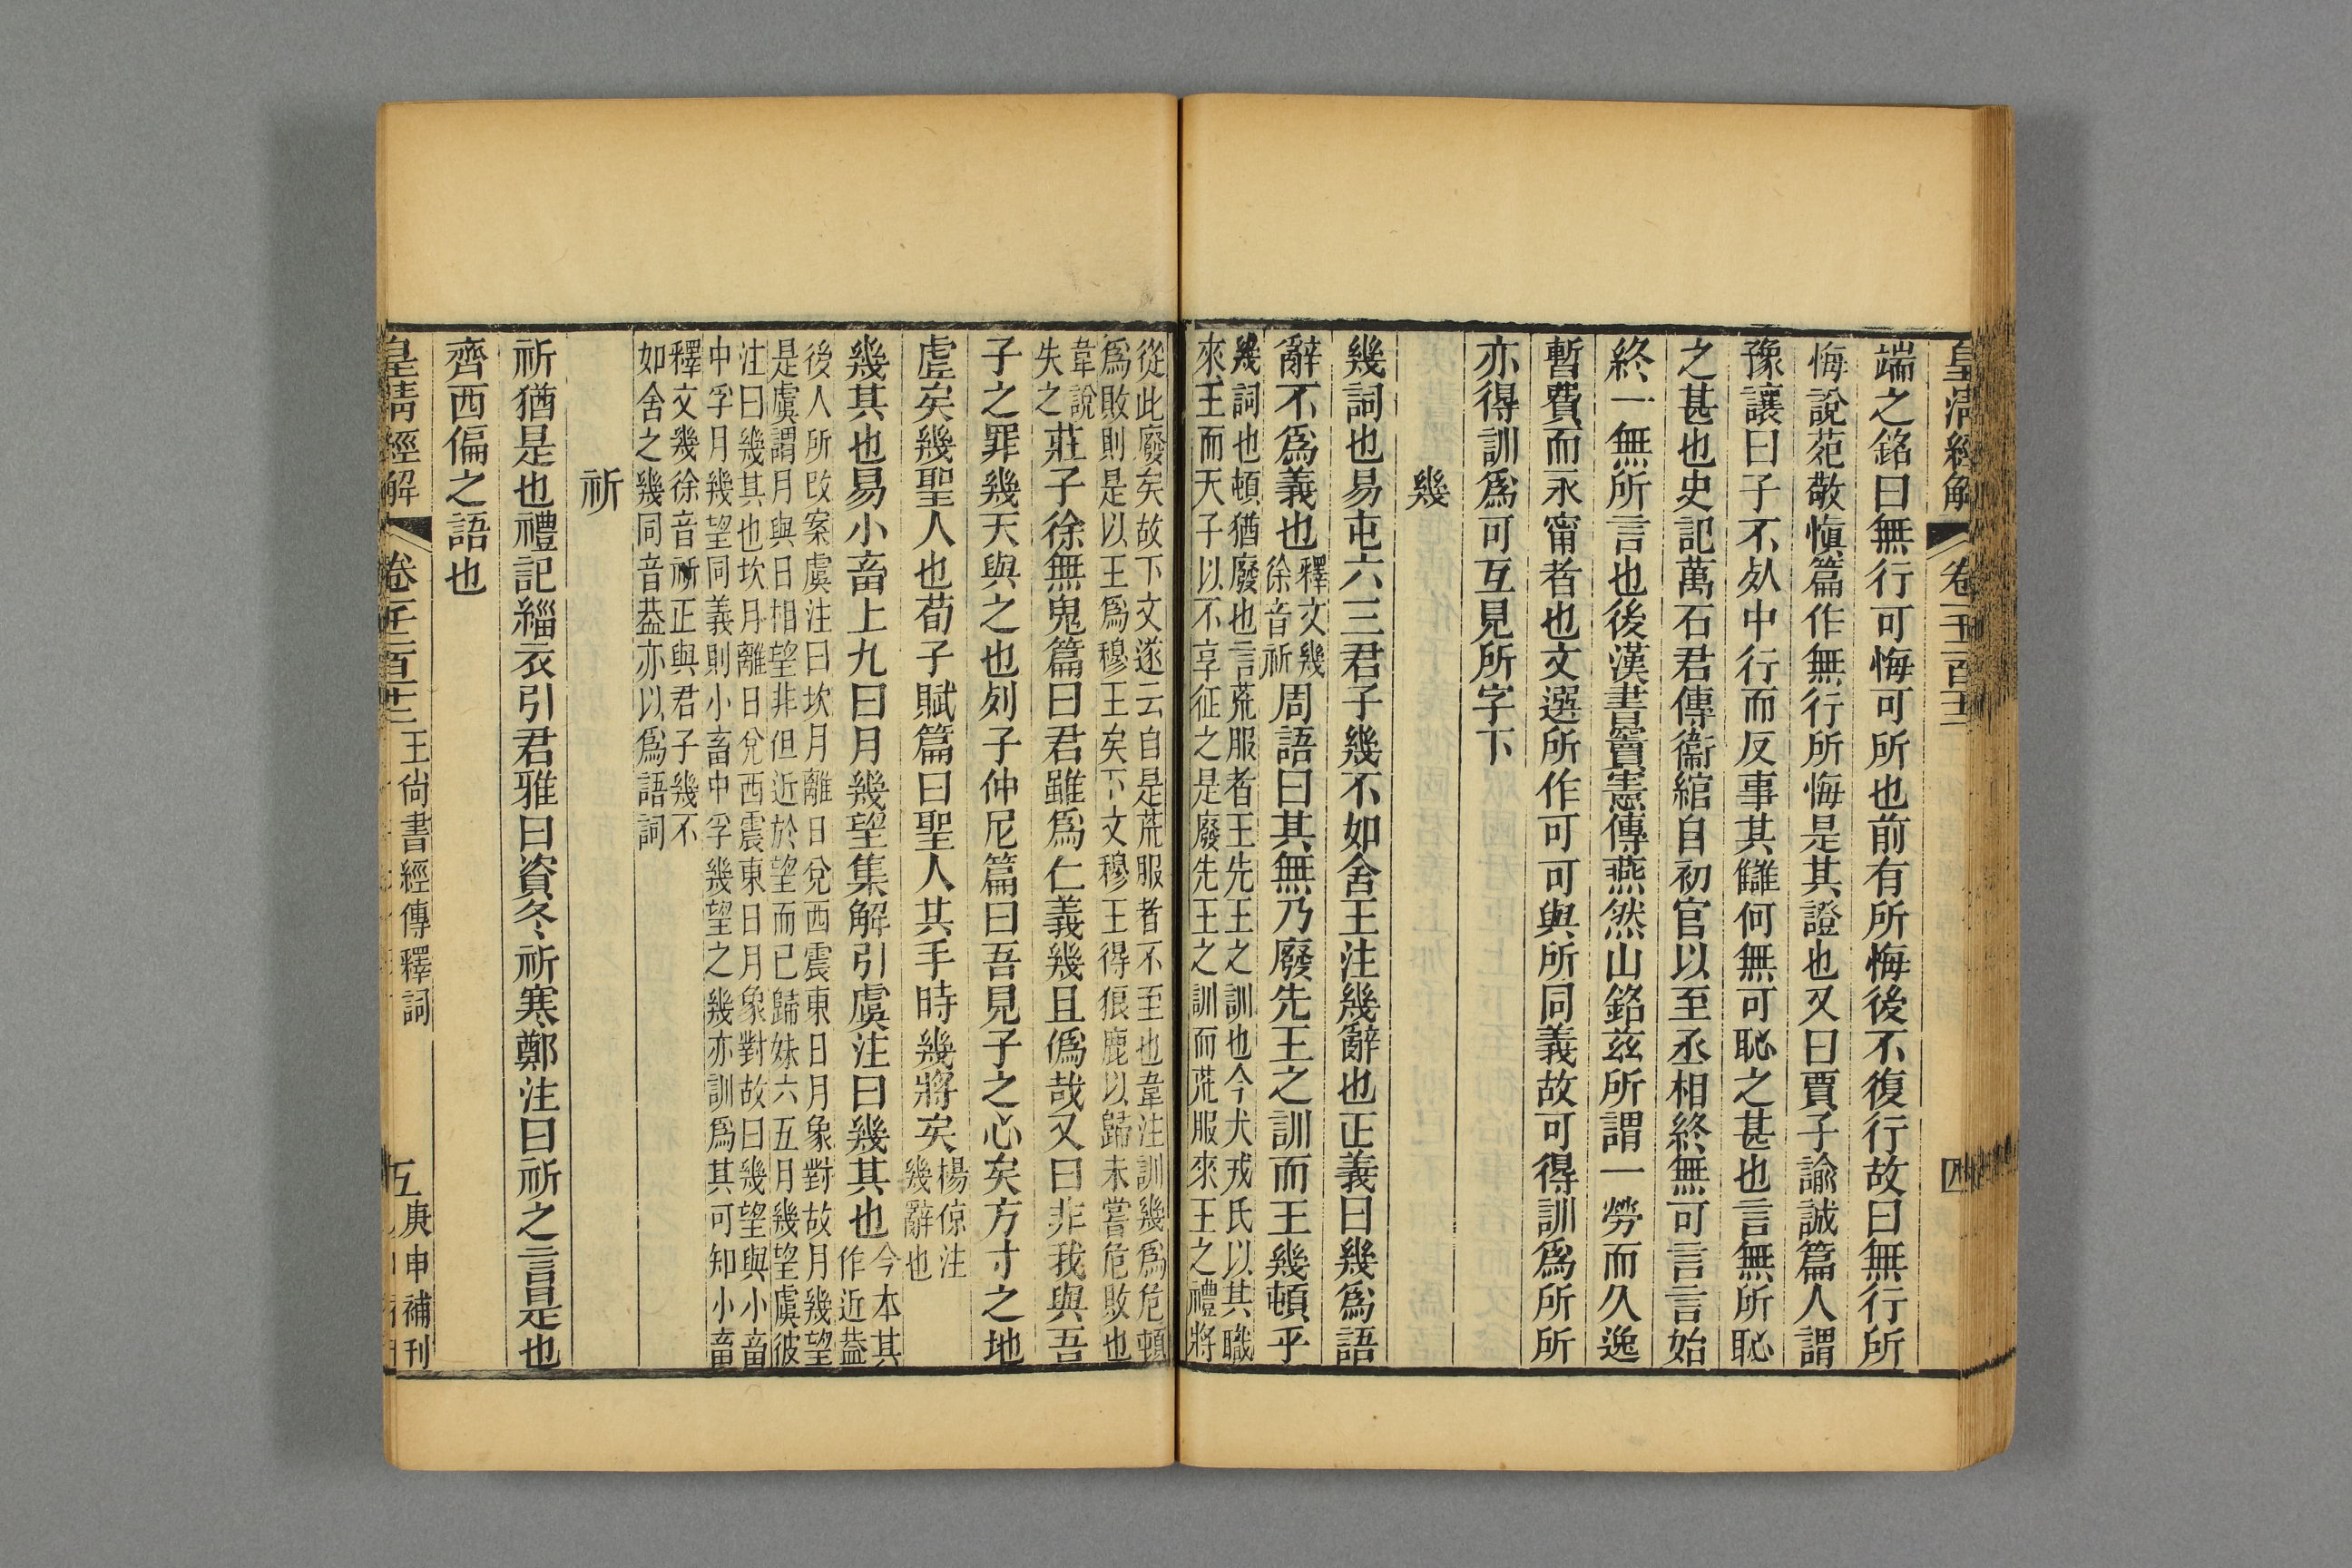 皇清經解
卷一千二百十二
四
端之銘曰無行可悔可所也前有所悔後不復行故曰無行所
悔說苑敬愼篇作無行所悔是其證也又曰賈子諭誠篇人謂
豫讓曰子不𣦸中行而反事其讎何無可恥之甚也言無所恥
之甚也史記萬石君傳衞綰自初官以至丞相終無可言言始
終一無所言也後漢書竇憲傳燕然山銘茲所謂一勞而久逸
暫費而永甯者也文選所作可可與所同義故可得訓爲所所
亦得訓爲可互見所字下
幾
幾詞也易屯六三君子幾不如舍王注幾辭也正義曰幾爲語
辭不爲義也
釋文幾
徐音祈
周語曰其無乃廢先王之訓而王幾頓乎
幾詞也頓猶廢也言荒服者王先王之訓也今犬戎氏以其職
來王而天子以不享征之是廢先王之訓而荒服來王之禮將
從此廢矣故下文遂云自是荒服者不至也韋注訓幾爲危頓
爲敗則是以王爲穆王矣下文穆王得狼鹿以歸未嘗危敗也
韋說
失之
莊子徐無鬼篇曰君雖爲仁義幾且僞哉又曰非我與吾
子之罪幾天與之也列子仲尼篇曰吾見子之心矣方寸之地
虛矣幾聖人也荀子賦篇曰聖人其手時幾將矣
楊倞注
幾辭也
幾其也易小畜上九曰月幾望集解引虞注曰幾其也
今本其
作近葢
後人所改案虞注曰坎月離日兌西震東日月象對故月幾望
是虞謂月與日相望非但近於望而已歸妹六五月幾望虞彼
注曰幾其也坎月離日兌西震東日月象對故曰幾望與小畜
中孚月幾望同義則小畜中孚幾望之幾亦訓爲其可知小畜
釋文幾徐音祈正與君子幾不
如舍之幾同音葢亦以爲語詞
祈
祈猶是也禮記緇衣引君雅曰資冬祈寒鄭注曰祈之言是也
齊西偏之語也
皇清經解
卷一千二百十二
王尙書經傳釋詞
五
庚申補刊